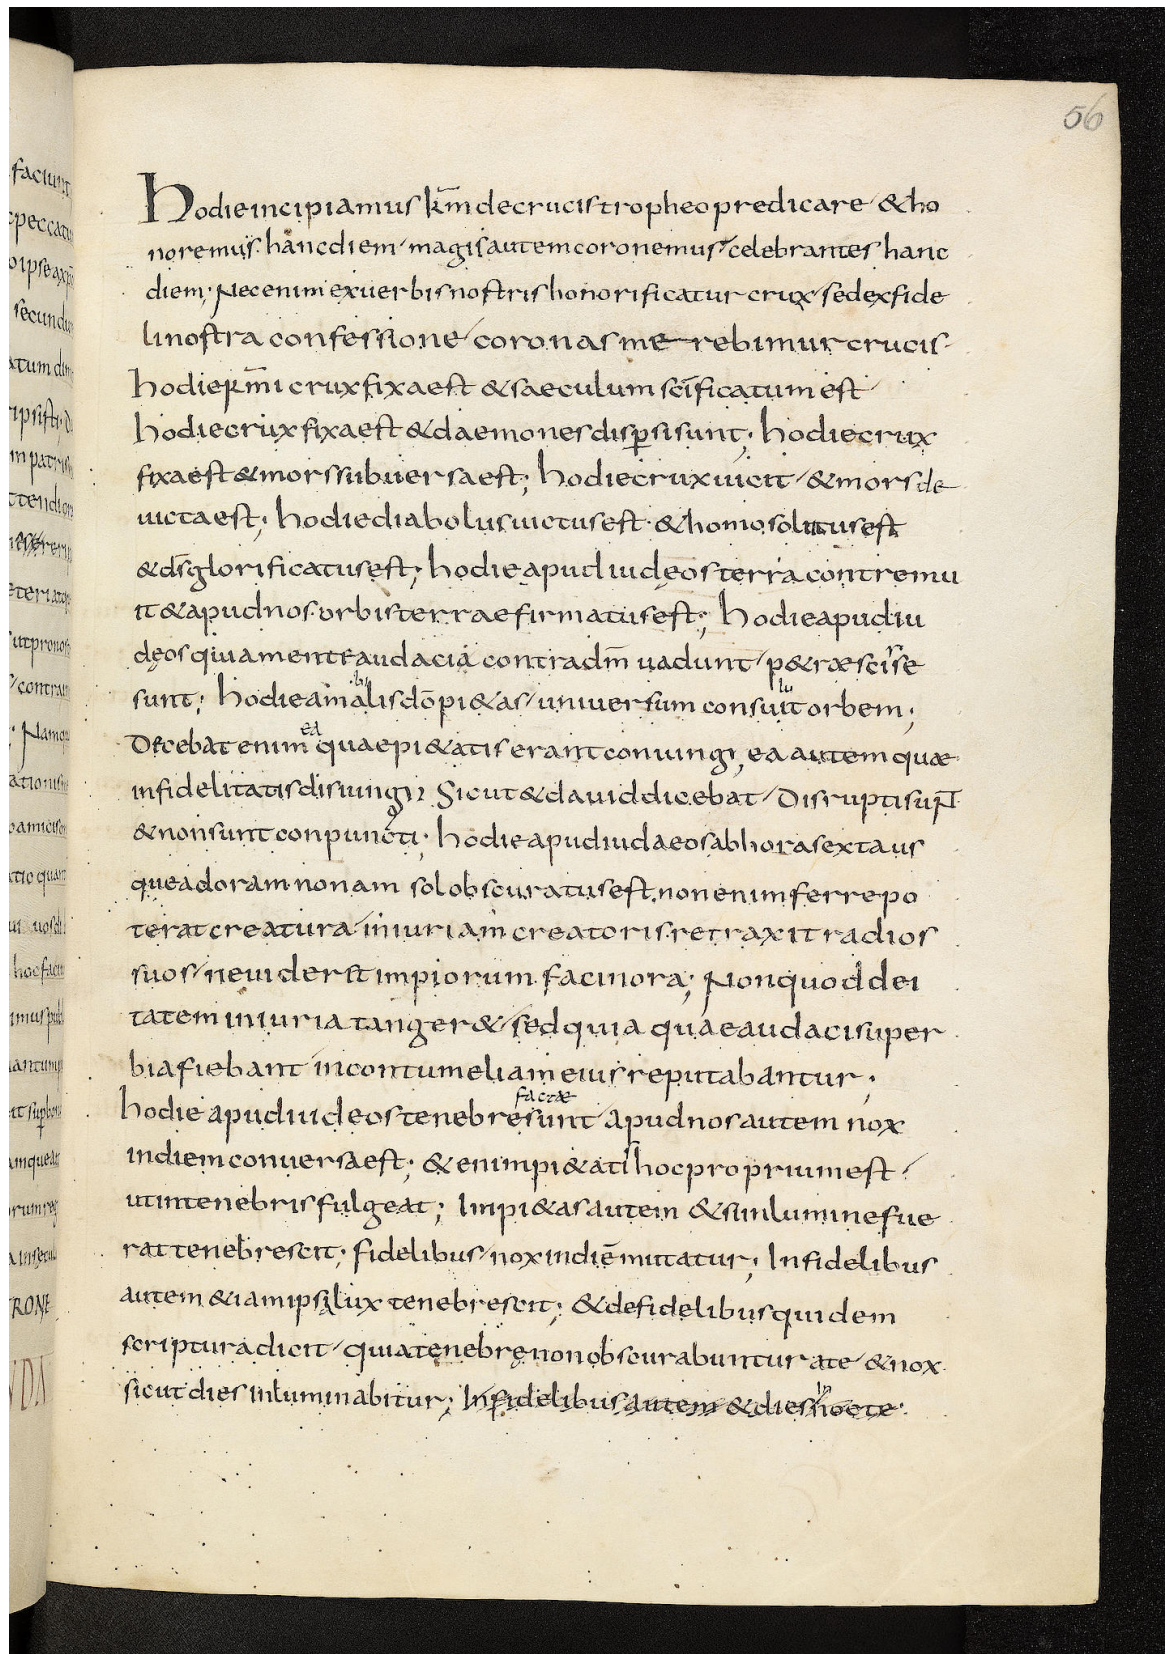 56
Hodie incipiamus km̄ de crucis tropheo predicare & ho
noremus hanc diem magis autem coronemus celebrantes hanc
diem; Nec enim ex uerbis nostris honorificatur crux sed ex fide
li nostra confessione coronas me rebimur crucis
hodie km̄i crux fixa est & saeculum sc̄ificatum est
hodie crux fixa est & daemones dispersi sunt; hodie crux
fixa est & mors subuersa est; hodie crux uicit & mors de
uicta est; hodie diabolus uictus est & homo solutus est
& ds̄ glorificatus est; hodie apud iudeos terra contremu
it & apud nos orbis terrae firmatus est; hodie apud iu
deos qui uamente audacia contra dm̄ uadunt p&rae scisse
sunt; hodie amabilis dō pi&as uniuersum consuluit orbem;
Decebat enim ea quae pi&atis erant coniungi, ea autem quae
infidelitatis disiungi; Sicut & dauid dicebat Disrupti sunt
& non sunt conpuncti; hodie apud iudaeos ab hora sexta us
que ad oram nonam sol obscuratus est. non enim ferre po
terat creatura iniuriam creatoris. retraxit radios
suos ne uiderit impiorum facinora; Non quod dei
tatem iniuria tanger& sed quia quae audaci super
bia fiebant in contumeliam eius reputabantur;
hodie apud iudeos tenebre factae sunt apud nos autem nox
in diem conuersa est; & enim pi&ati hoc proprium est
ut in tenebris fulgeat; Impi&as autem & si in lumine fue
rat tenebrescit; fidelibus nox in diē mutatur; Infidelibus
autem &iam ipsa lux tenebrescit; & de fidelibus quidem
scriptura dicit quia tenebrę non obscurabuntur a te & nox
sicut dies inluminabitur; Infidelibus autem & dies nocte